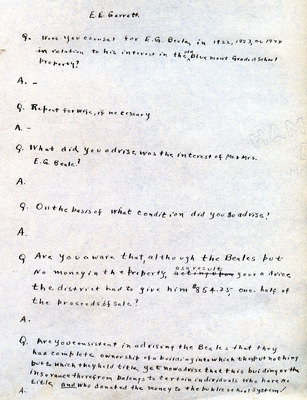 E.E. Garrett
Q. Were you counsel for E.G. Beale, in 1922, 1923, or 1924
in relation to his interest in the old Bluemont Graded School
Property?
A. -
Q. Repeat for wife, if necessary
A. -
Q. What did you advise was the interest of Mr. & Mrs.
E.G. Beale?
A.
Q. On the basis of what condition did you so advise?
A.
Q. Are you aware that, although the Beales put
no money in the property, as a result your advice
the district had to give him $854.25, one-half of
the proceeds of sale?
A.
Q. Are you consistent in advising the Beales that they
had complete ownership of a building into which they put nothing
but to which they held title, yet now advise that this building or the
insurance therefrom belongs to certain individuals who have no
title, and who donated the money to the public school system?
A.